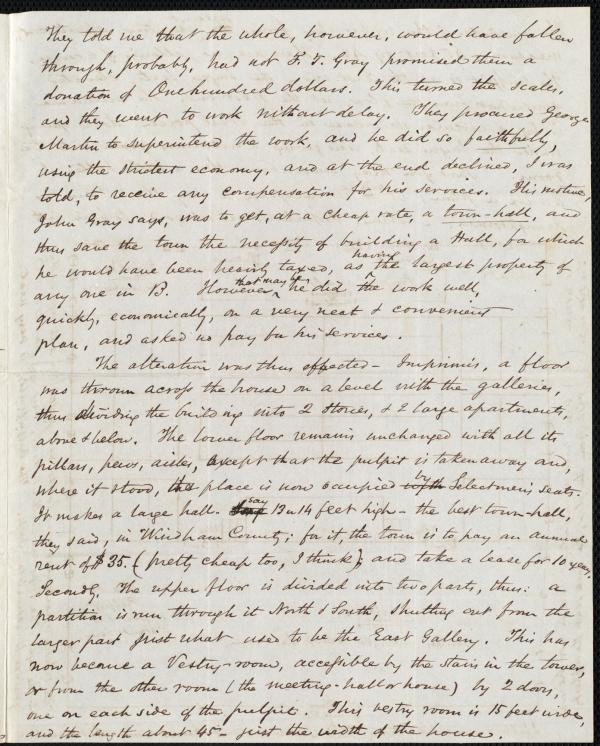 They told me that the whole, however, would have fallen
through, probably, had not F. T. Gray promised them a
donation of One hundred dollars. This turned the scales,
and they went to work without delay. They procured George
Martin to superintend the work, and he did so faithfully,
using the strictest economy, and at the end declined, I was
told, to receive any compensation for his services. His motive,
John Gray says, was to get, at a cheap rate, a town-hall, and
thus save the town the necessity of building a Hall, for which
he would have been heavily taxed, as having the largest property of
any one in B. However that may be, he did the work well,
quickly, economically, on a very neat & convenient
plan, and asked no pay for his services.
The alteration was thus effected - Imprimis, a floor
was thrown across the house on a level with the galleries,
thus dividing the building into 2 stories, & 2 large apartments,
above & below. The lower floor remains unchanged with all its
pillars, pews, aisles, except that the pulpit is taken away and,
where it stood, the place is now occupied with by Selectmen's seats.
It makes a large hall - say 13 or 14 feet high - the best town-hall,
they said, in Windham County; for it, the town is to pay an annual
rent of $35. (pretty cheap too, I think), and take a lease for 10 years.
Secondly, The upper floor is divided into two parts, thus: a
partition is run through it North & South, shutting out from the
larger part just what used to be the East Gallery. This has
now become a Vestry-room, accessible by the stairs in the tower,
or from the other room (the meeting-hall or house) by 2 doors,
one on each side of the pulpit. This vestry room is 15 feet wide,
and the length about 45 - just the width of the house.